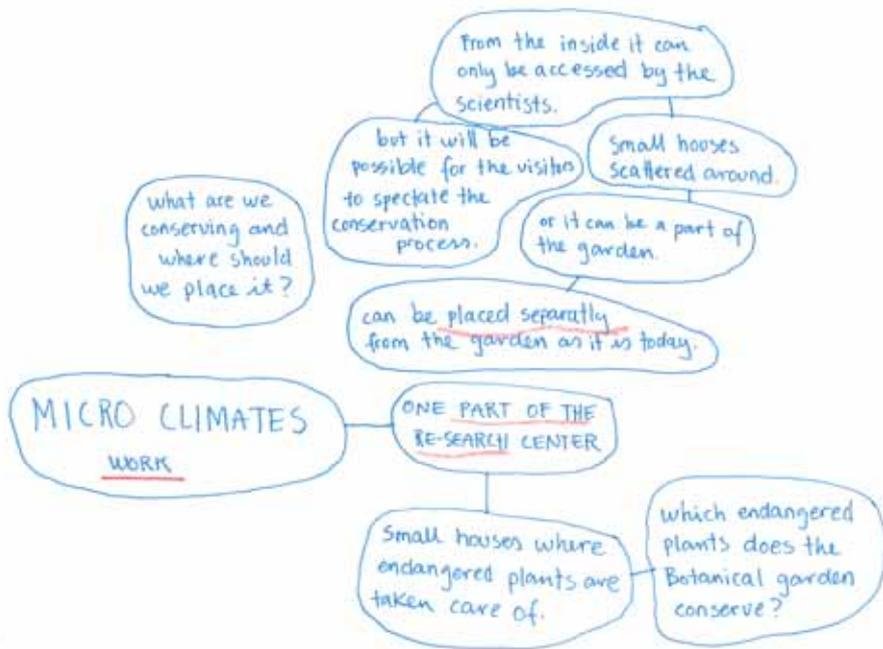 From the inside it can
only be accessed by the
scientists.
but it will be
possible for the visitors
to spectate the
conservation
process.
small houses
scattered around.
what are we
conserving and
where should
we place it?
or it can be a part of
the garden.
can be placed separatly
from the garden as it is today.
MICRO CLIMATES
WORK
ONE PART OF THE
RE-SEARCH CENTER
Small houses where
endangered plants are
taken care of.
which endangered
plants does the
Botanical garden
conserve?